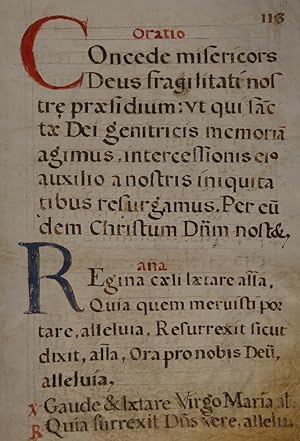 113
Oratio
Concede misericors
Deus fragilitati nos
trę præsidium: vt qui sãc
tæ Dei genitricis memoriã
agimus, intercessionis ei9
auxilio a nostris iniquita
tibus resurgamus. Per eũ
dem Christum Dñm nost&,
Ana
Regina cæli lætare alla,
Quia quem meruisti por
tare, alleluia, Resurrexit sicut
dixit, alla, Ora pro nobis Deũ,
alleluia,
V Gaude & lætare Virgo Maria al.
R Quia surrexit Dñs vere, alleluia